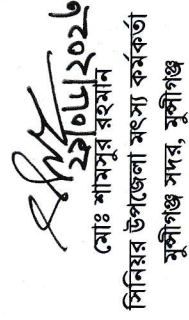 মোঃ শামসুর রহমান
সিনিয়র উপজেলা মৎস্য কর্মকর্তা
মুন্সীগঞ্জ সদর, মুন্সীগঞ্জ